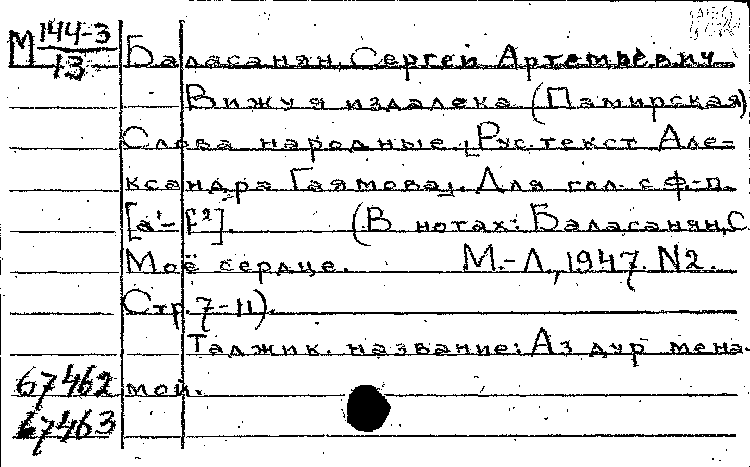 М 144-3
13
Баласанян, Сергей Артемьевич
Вижу я издалека (Памирская)
Слова народные. [Рус. текст Але=
ксандра Гаямова]. Для гол. с ф.-п.
[a¹-f²]. (В нотах: Баласанян, С.
Моё сердце. М.-Л., 1947. N2.
Стр. 7-11).
Таджик. название: Аз дур мена-
67462 мои.
67463